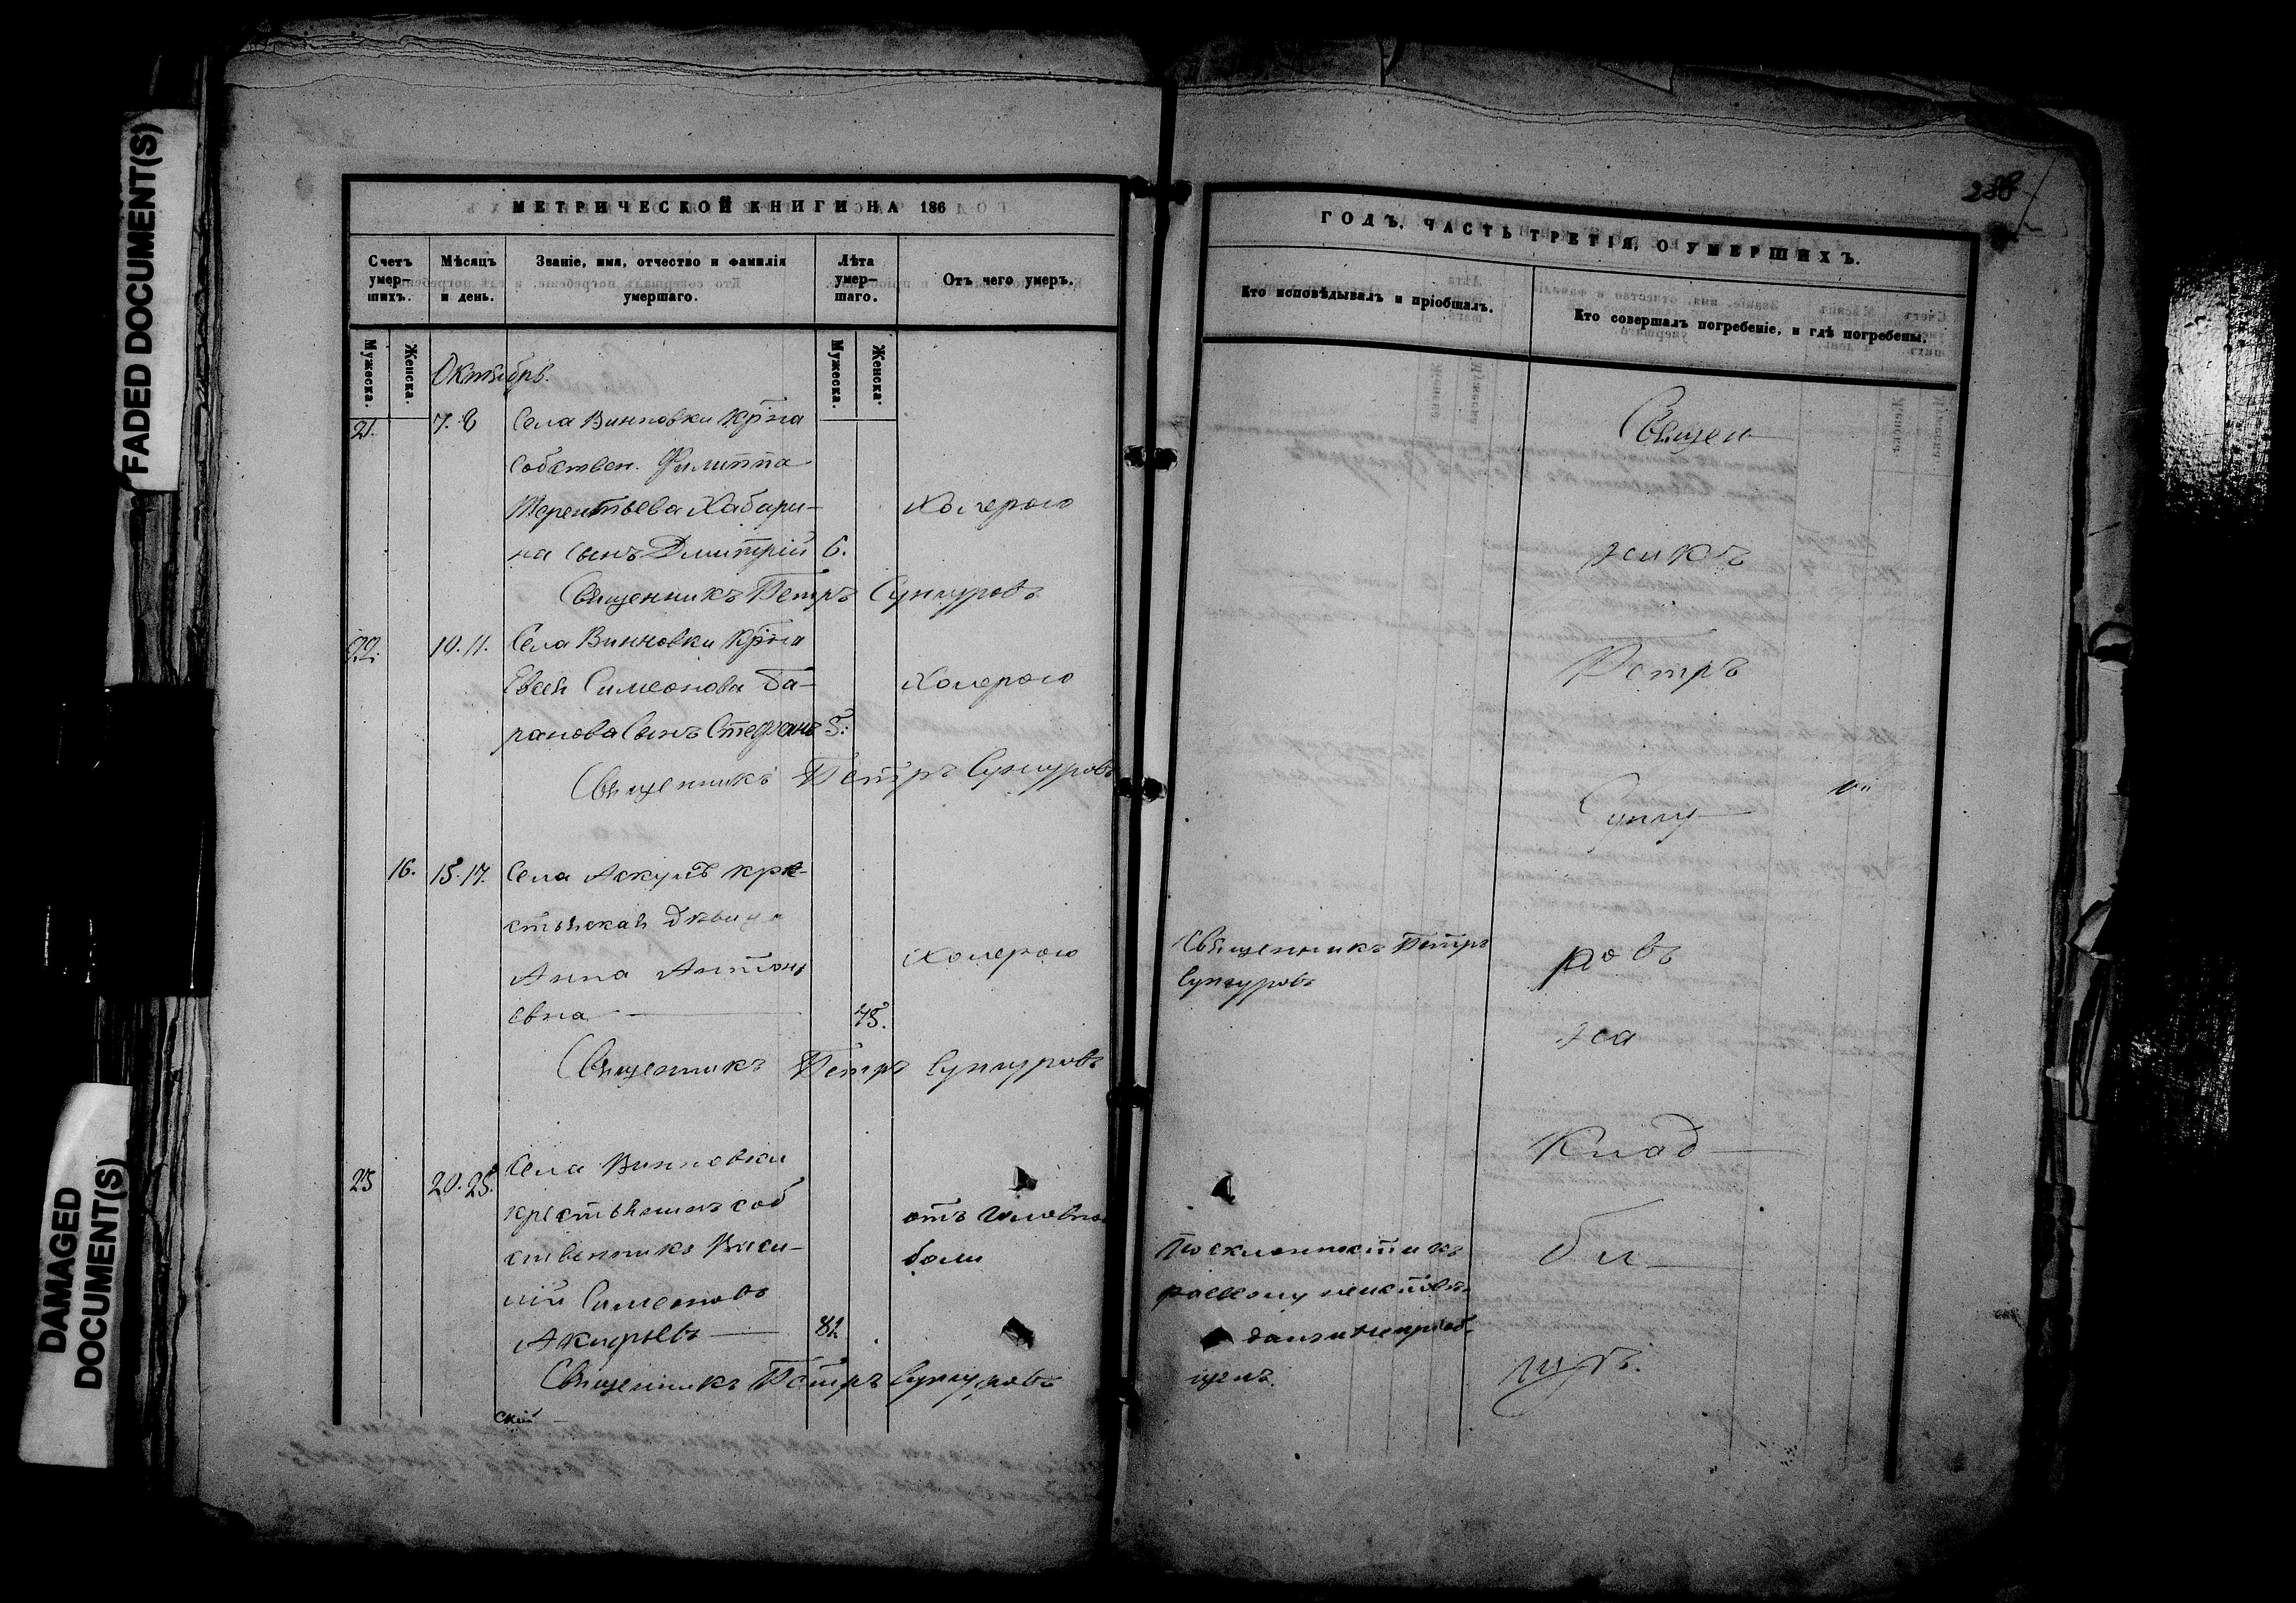 FADED DOCUMENT(S)
DAMAGED
DOCUMENT(S)
МЕТРИЧЕСКОЙ КНИГИ НА 186
Счетъ умер-шихъ.
Мѣсяцъ и день.
Званіе, имя, отчество и фамилія умершаго.
Лѣта умер-шаго.
Отъ чего умеръ.
Мужеска.
Женска.
Мужеска.
Женска.
Октябрь.
21. 7. 8 Села Винновки Кр̃на
собствен. Филиппа
Терентьева Хабари- Холерою
на сынъ Димитрій 6.
Священникъ Петръ Сунгуровъ
22. 10. 11. Села Винновки Кр̃на
Евсея Симеонова Ба- Холерою
ранова сынъ Стефанъ 5.
Священникъ Петръ Сунгуровъ
16. 15. 17. Села Аскулъ кре-
стьянская дѣвица
Анна Антонь Холерою
евна 45.
Священникъ Петръ Сунгуровъ
23 20. 23. Села Винновки
крестьянинъ соб
ственникъ Васи- отъ головной
лій Симеоновъ боли
82
Священникъ Петръ Сунгуровъ
скій
238
ГОДЪ. ЧАСТЬ ТРЕТІЯ, О УМЕРШИХЪ.
Кто исповѣдывалъ и пріобщалъ.
Кто совершалъ погребеніе, и гдѣ погребены.
Священникъ Петръ
Сунгуровъ
По склонности къ
щенъ.
Свящеи
никъ
Петръ
Сунгу
ровъ
на
Клад
би
щѣ.